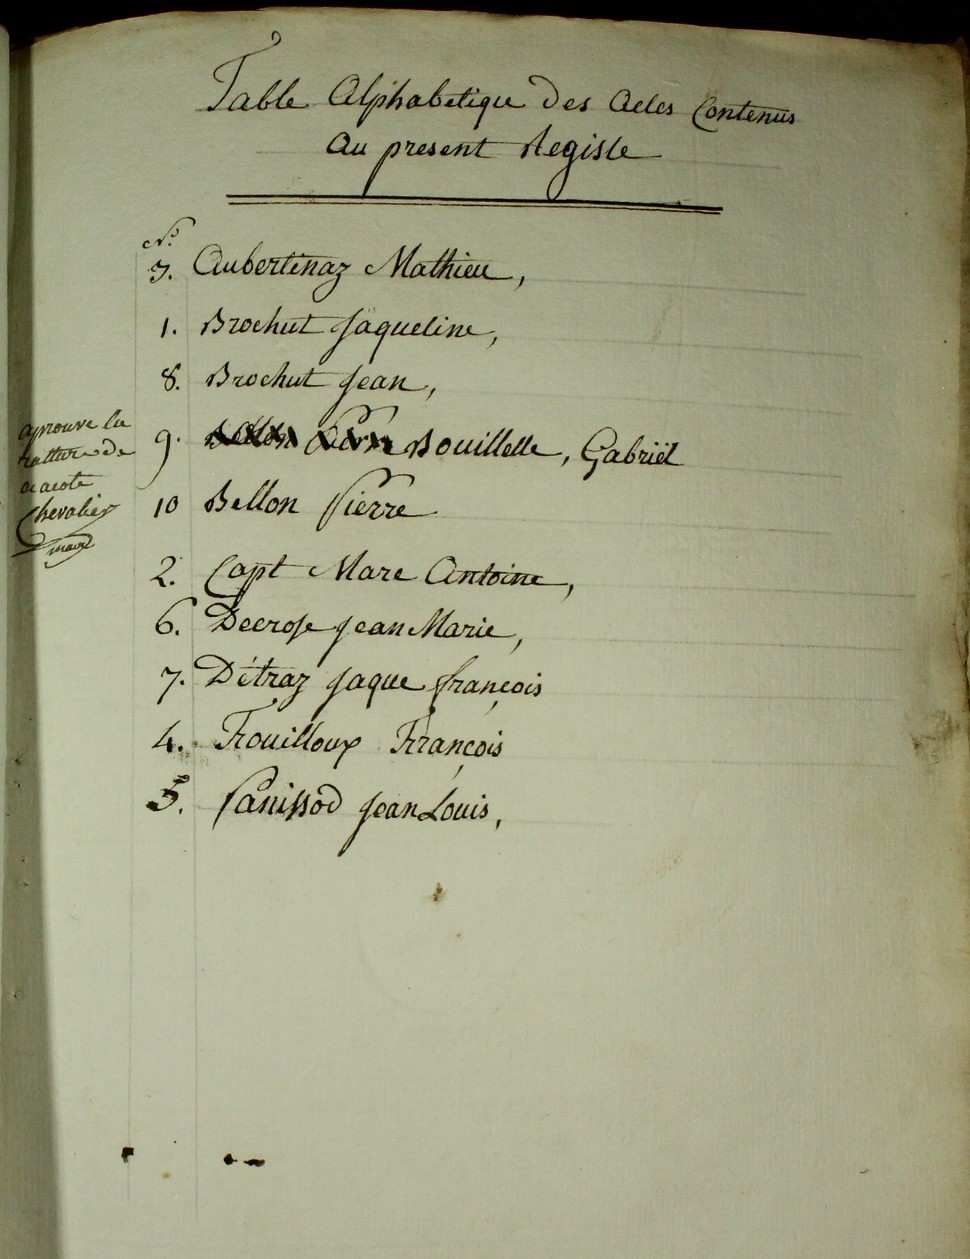 Table Alphabetique des Actes Contenus
Au present Registe
N.º
3. Aubertinaz Mathieu,
1. Brochut Jaqueline,
8. Brochut Jean,
9. Bellon Pierre Bouillette, Gabriël
aprouve la
rature de
a coté
Chevalier
maire
10 Bellon Pierre
2. Capt Marc Antoine,
6. Decrose Jean Marie,
7. Détraz Jaque françois
4. Frouilloux François
5. Panissod Jean Louis,